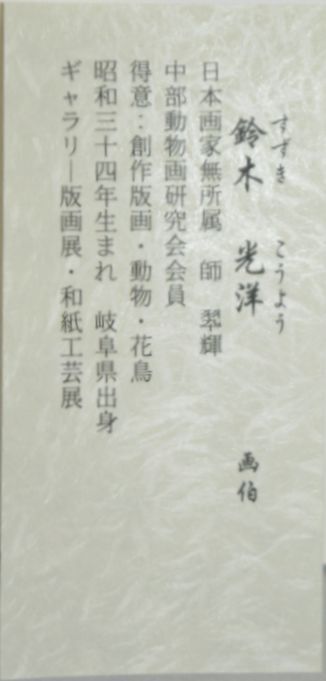 すずき こうよう
鈴木 光洋 画伯
日本画家無所属 師 翆輝
中部動物画研究会会員
得意：創作版画・動物・花鳥
昭和三十四年生まれ 岐阜県出身
ギャラリー版画展・和紙工芸展